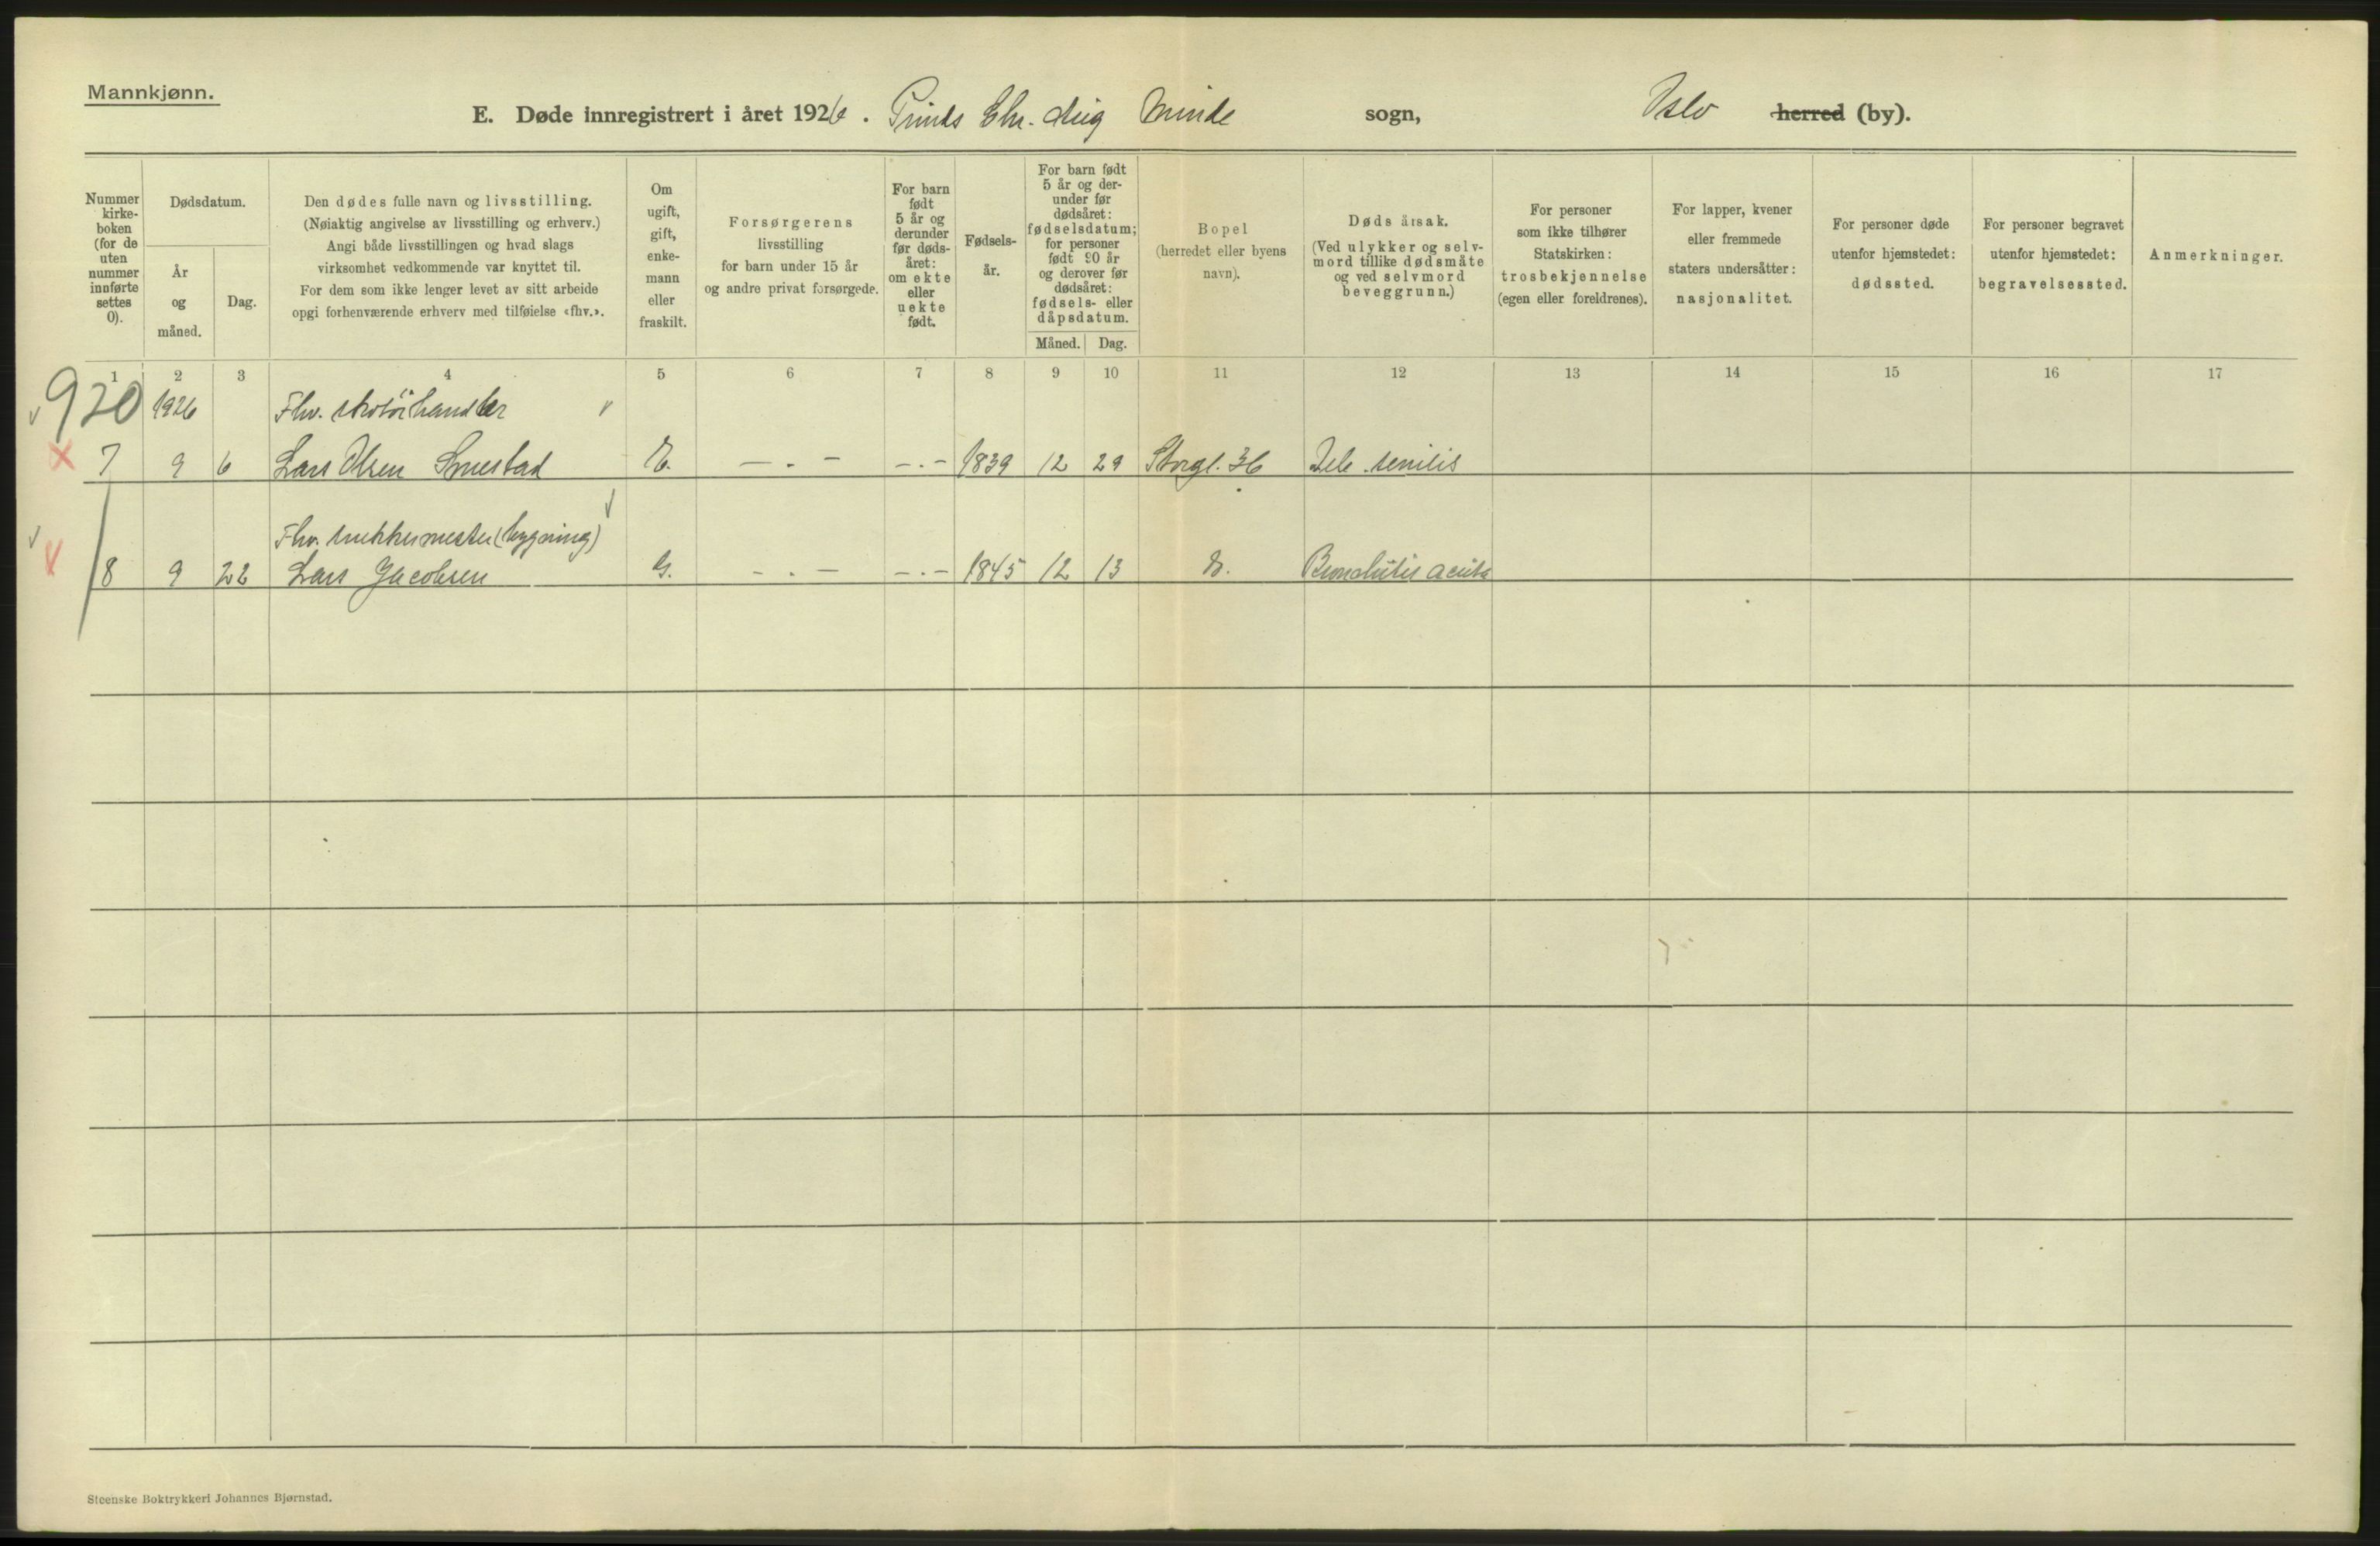 Mannkjønn.
E. Døde innregistrert i året 1926. Prinds Chr. Aug Minde sogn, Oslo herred (by).
Nummer
kirke-
boken
(for de
uten
nummer
innførte
settes
0).
Dødsdatum.
År
og
måned.
Dag.
Den dødes fulle navn og livsstilling.
(Nøiaktig angivelse av livsstilling og erhverv.)
Angi både livsstillingen og hvad slags
virksomhet vedkommende var knyttet til.
For dem som ikke lenger levet av sitt arbeide
opgi forhenværende erhverv med tilføielse «fhv.».
Om
ugift,
gift,
enke-
mann
eller
fraskilt.
Forsørgerens
livsstilling
for barn under 15 år
og andre privat forsørgede.
For barn
født
5 år og
derunder
før døds-
året:
om ekte
eller
uekte
født.
Fødsels-
år.
For barn født
5 år og der-
under før
dødsåret:
fødselsdatum;
for personer
født 90 år
og derover før
dødsåret:
fødsels- eller
dåpsdatum.
Måned. Dag.
Bopel
(herredet eller byens
navn).
Dødsårsak.
(Ved ulykker og selv-
mord tillike dødsmåte
og ved selvmord
beveggrunn.)
For personer
som ikke tilhører
Statskirken:
trosbekjennelse
(egen eller foreldrenes).
For lapper, kvener
eller fremmede
staters undersåtter:
nasjonalitet.
For personer døde
utenfor hjemstedet:
dødssted.
For personer begravet
utenfor hjemstedet:
begravelsessted.
Anmerkninger.
1 2 3 4 5 6 7 8 9 10 11 12 13 14 15 16 17
920 1926 Fhv. skotöihandler
7 9 6 Lars Olsen Smestad E. — . — — . — 1839 12 29 Storgt. 36 Deb. senilis
Fhv. snekkermester (bygning)
8 9 22 Lars Jacobsen G. — . — — . — 1845 12 13 Bronchitis acuta
Steenske Boktrykkeri Johannes Bjørnstad.